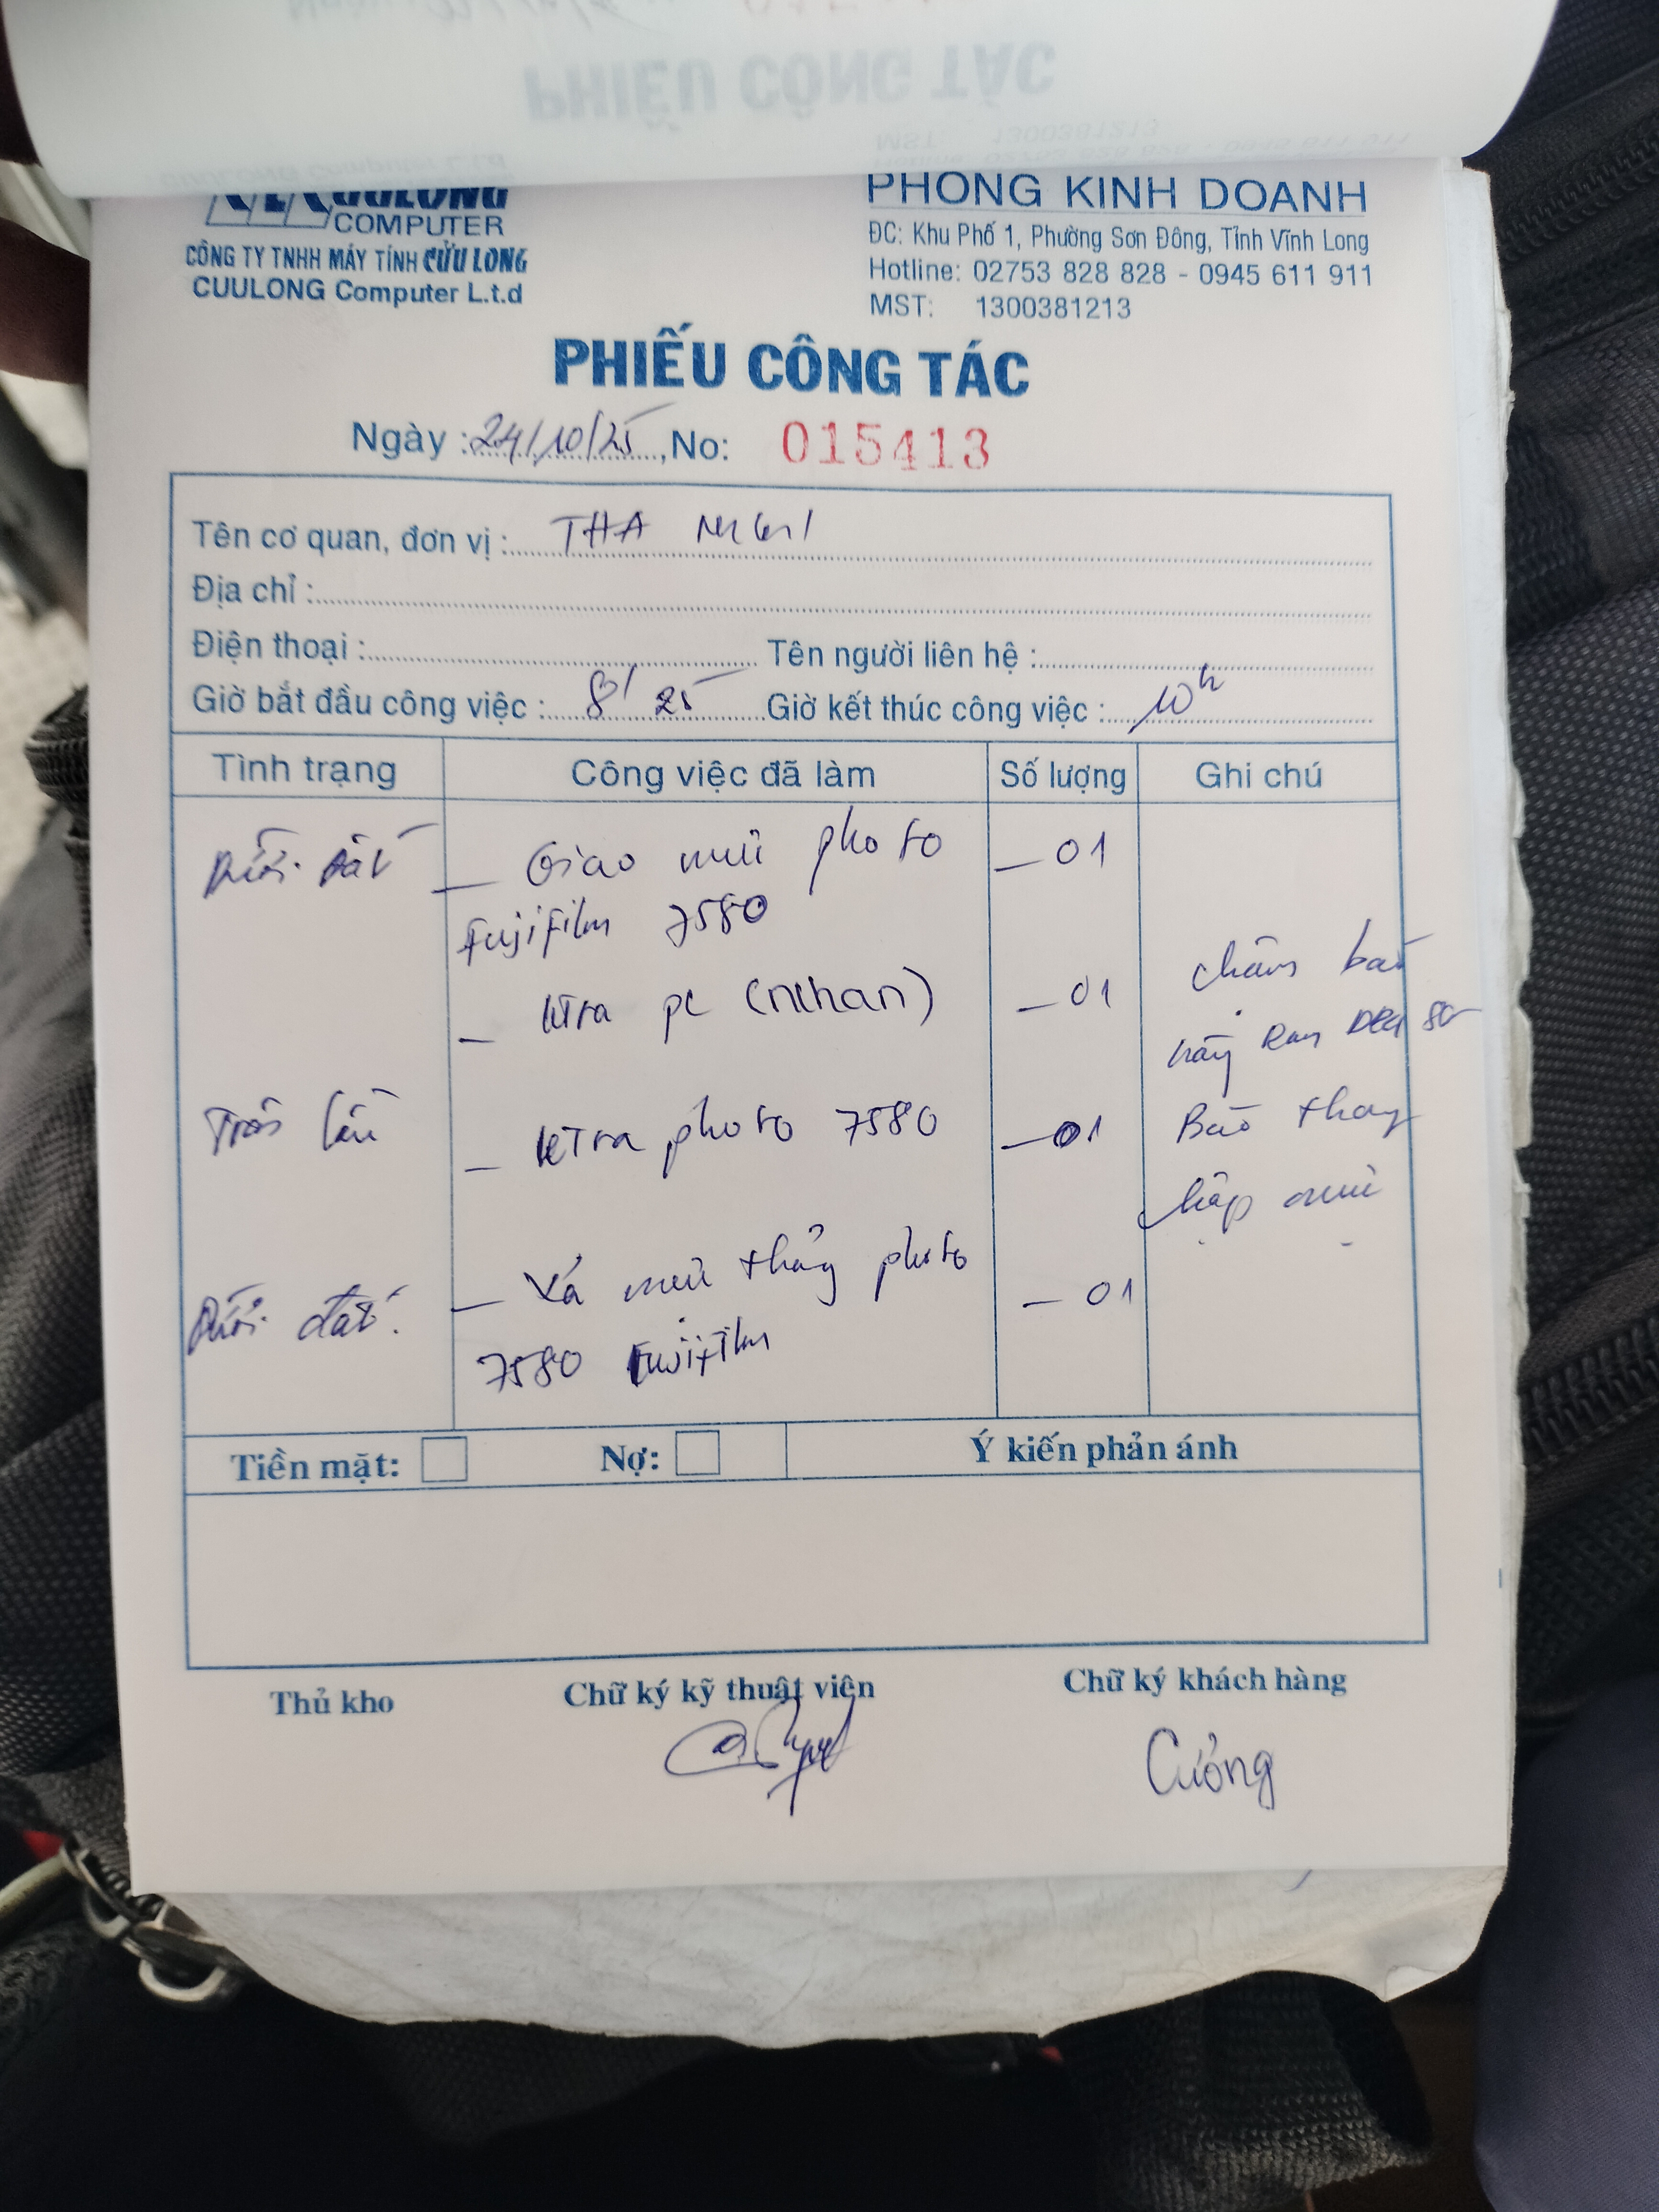 CUULONG
COMPUTER
CÔNG TY TNHH MÁY TÍNH CỬU LONG
CUULONG Computer L.t.d
PHÒNG KINH DOANH
ĐC: Khu Phố 1, Phường Sơn Đông, Tỉnh Vĩnh Long
Hotline: 02753 828 828 - 0945 611 911
MST: 1300381213
PHIẾU CÔNG TÁC
Ngày : 24/10/25, No: 015413
Tên cơ quan, đơn vị : THA
Địa chỉ :
Điện thoại : Tên người liên hệ :
Giờ bắt đầu công việc : 8' 25 Giờ kết thúc công việc : 10h
Tình trạng Công việc đã làm Số lượng Ghi chú
Dưới đất — Giao mực photo — 01
Fujifilm 7580
— ktra pc (nthan) — 01
Trên lầu — ktra photo 7580 — 01
Báo thay
hộp mực
Dưới đất. — Xả mực thảy photo — 01
7580 Fujifilm
Tiền mặt: Nợ: Ý kiến phản ánh
Thủ kho Chữ ký kỹ thuật viên Chữ ký khách hàng
Cường